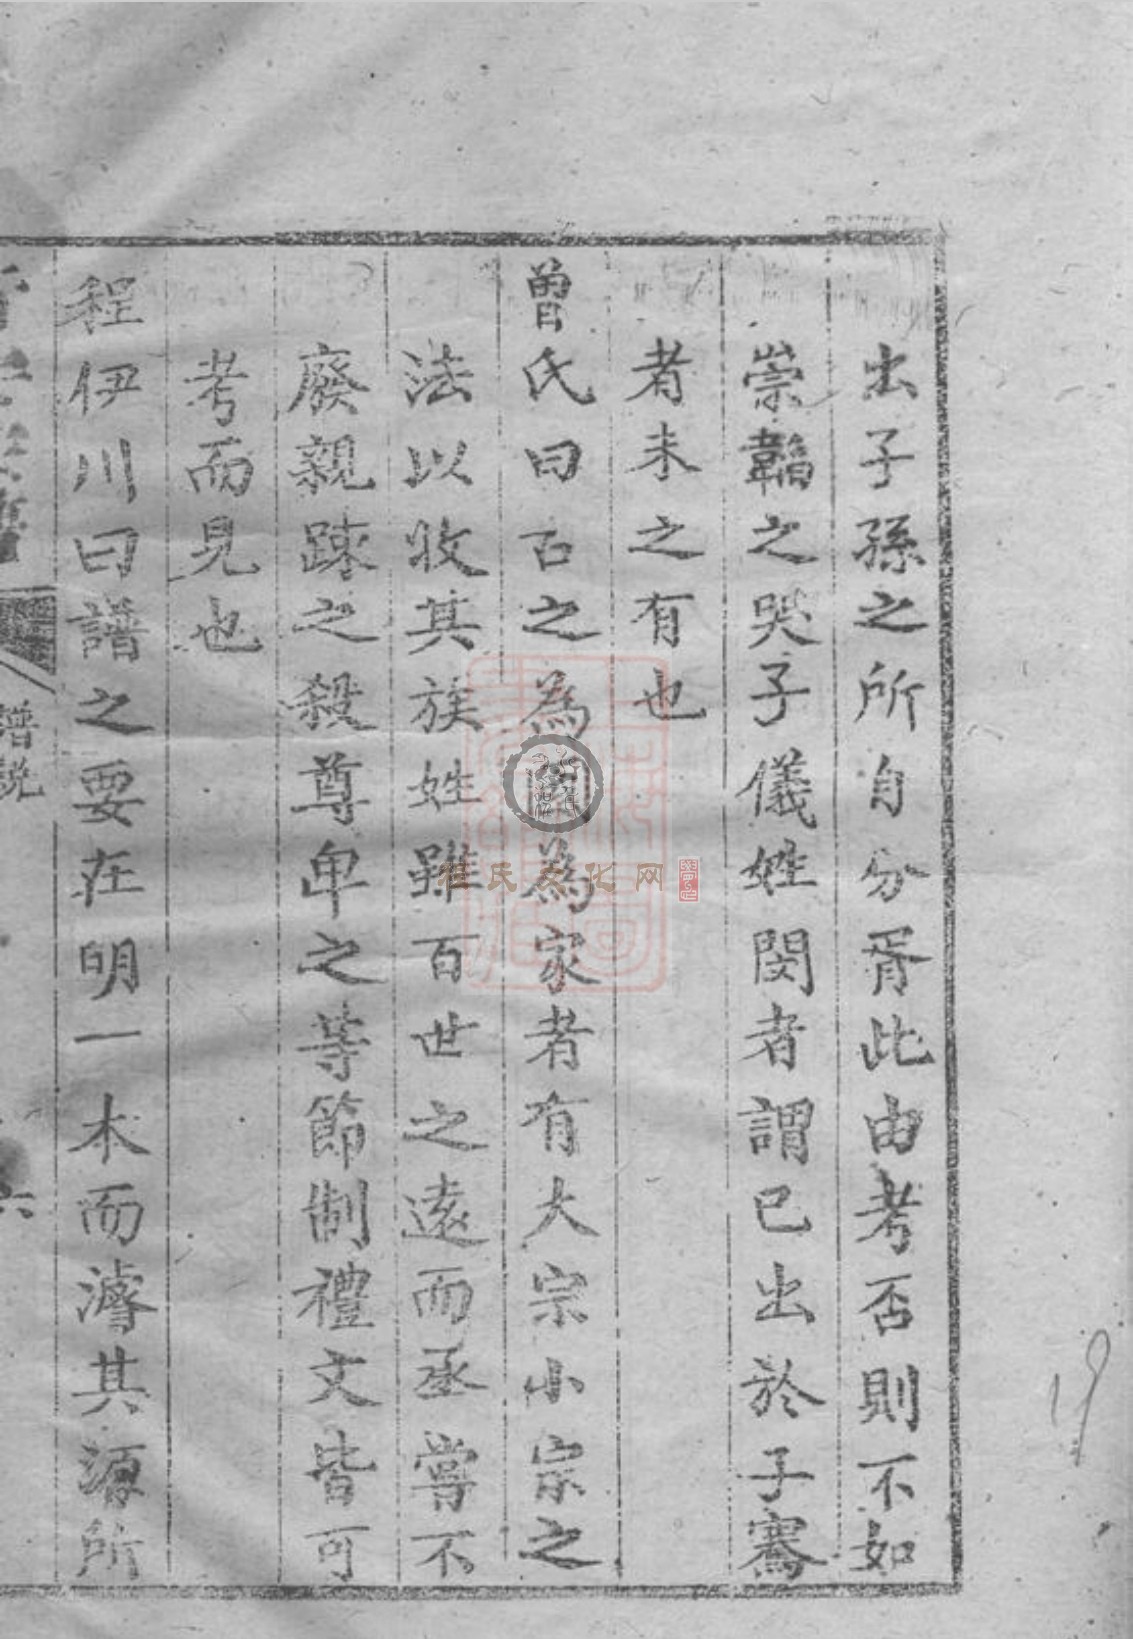 出子孫之所自分胥此由考否則不如
崇韜之哭子儀姓閔者謂已出於子騫
者未之有也
曾氏曰古之為國為家者有大宗小宗之
法以收其族姓雖百世之遠而丞嘗不
廢親踈之殺尊卑之等節制禮文皆可
考而見也
程伊川曰譜之要在明一本而濬其源所
譜説
六
19
民文化网